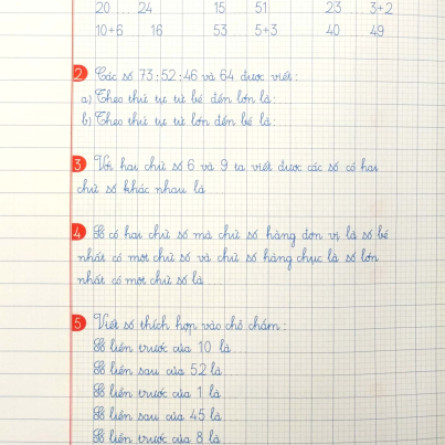 20 .... 24 15 .... 51 23 .... 3+2
10+6 .... 16 53 .... 5+3 40 .... 49
2 Các số 73 ; 52 ; 46 và 64 được viết :
a) Theo thứ tự từ bé đến lớn là :
b) Theo thứ tự từ lớn đến bé là :
3 Với hai chữ số 6 và 9 ta viết được các số có hai
chữ số khác nhau là ....
4 Số có hai chữ số mà chữ số hàng đơn vị là số bé
nhất có một chữ số và chữ số hàng chục là số lớn
nhất có một chữ số là ....
5 Viết số thích hợp vào chỗ chấm :
Số liền trước của 10 là ....
Số liền sau của 52 là ....
Số liền trước của 1 là ....
Số liền sau của 45 là ....
Số liền trước của 8 là ....